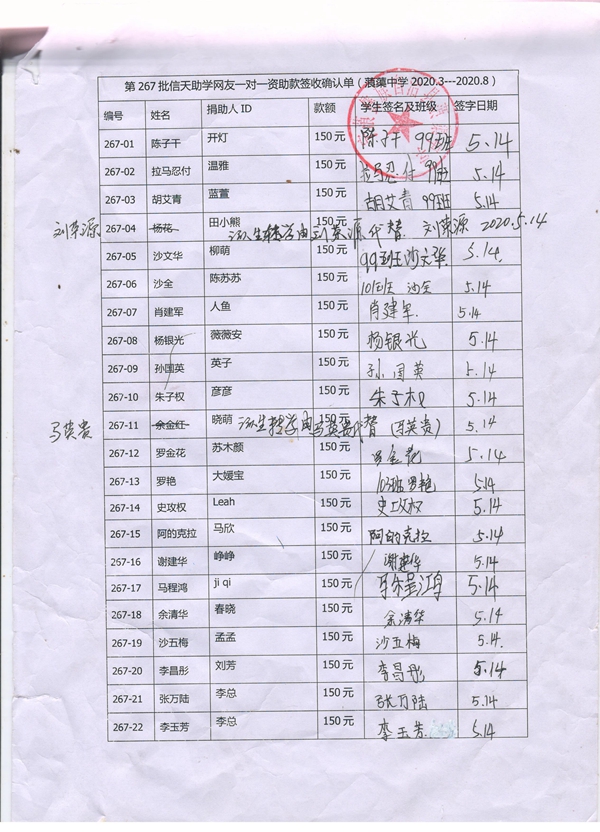 第 267 批信天助学网友一对一资助款签收确认单（蒗蕖中学 2020.3---2020.8）
编号 姓名 捐助人 ID 款额 学生签名及班级 签字日期
267-01 陈子干 开灯 150 元 陈子干 99班 5.14
267-02 拉马忍付 温雅 150 元 拉马忍付 99班 5.14
267-03 胡艾青 蓝萱 150 元 胡艾青 99班 5.14
刘荣源 267-04 杨花 田小熊 150 元 该生转学由刘荣源代替 刘荣源 2020.5.14
267-05 沙文华 柳萌 150 元 99班 沙文华 5.14
267-06 沙全 陈苏苏 150 元 101班 沙全 5.14
267-07 肖建军 人鱼 150 元 肖建军 5.14
267-08 杨银光 薇薇安 150 元 杨银光 5.14
267-09 孙国英 英子 150 元 孙国英 5.14
267-10 朱子权 彦彦 150 元 朱子权 5.14
马英贵 267-11 余金红 晓萌 150 元 该生转学由马英贵代替（马英贵） 5.14
267-12 罗金花 苏木颜 150 元 罗金花 5.14
267-13 罗艳 大媛宝 150 元 103班 罗艳 5.14
267-14 史攻权 Leah 150 元 史攻权 5.14
267-15 阿的克拉 马欣 150 元 阿的克拉 5.14
267-16 谢建华 峥峥 150 元 谢建华 5.14
267-17 马程鸿 ji qi 150 元 马程鸿 5.14
267-18 余清华 春晓 150 元 余清华 5.14
267-19 沙五梅 孟孟 150 元 沙五梅 5.14.
267-20 李昌彤 刘芳 150 元 李昌彤 5.14
267-21 张万陆 李总 150 元 张万陆 5.14
267-22 李玉芳 李总 150 元 李玉芳 5.14